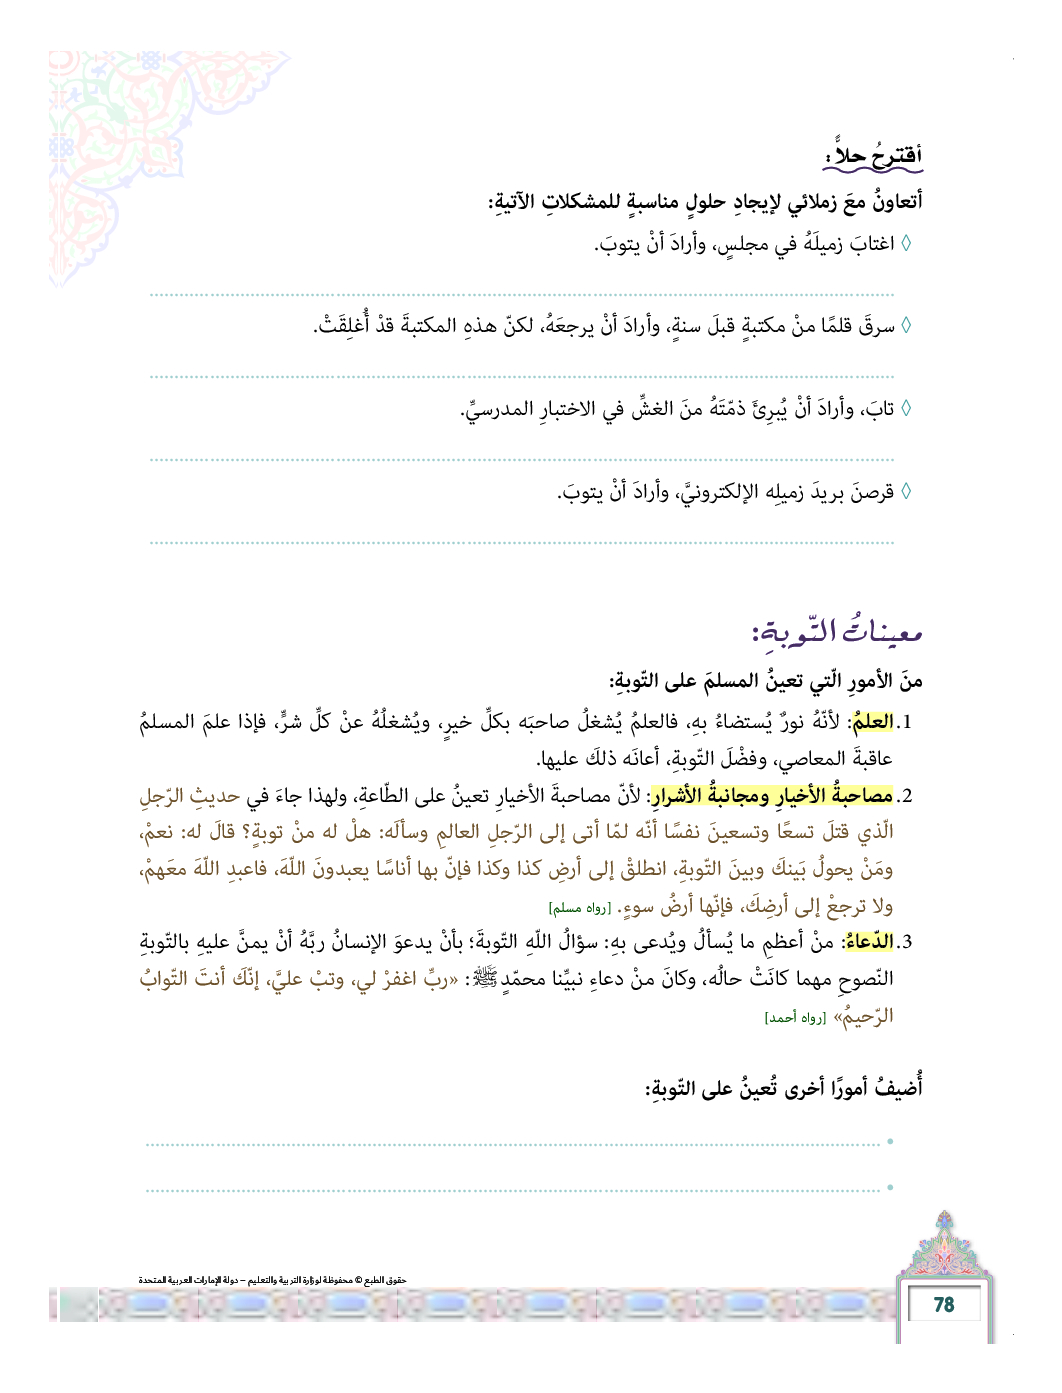 أقترحُ حلاًّ:
أتعاونُ معَ زملائي لإيجادِ حلولٍ مناسبةٍ للمشكلاتِ الآتيةِ:
◊ اغتابَ زميلَهُ في مجلسٍ، وأرادَ أنْ يتوبَ.
◊ سرقَ قلمًا منْ مكتبةٍ قبلَ سنةٍ، وأرادَ أنْ يرجعَهُ، لكنّ هذهِ المكتبةَ قدْ أُغلِقَتْ.
◊ تابَ، وأرادَ أنْ يُبرِئَ ذمّتَهُ منَ الغشِّ في الاختبارِ المدرسيِّ.
◊ قرصنَ بريدَ زميلِه الإلكترونيَّ، وأرادَ أنْ يتوبَ.
معيناتُ التّوبةِ:
منَ الأمورِ الّتي تعينُ المسلمَ على التّوبةِ:
1. العلمُ: لأنّهُ نورٌ يُستضاءُ بهِ، فالعلمُ يُشغلُ صاحبَه بكلِّ خيرٍ، ويُشغلُهُ عنْ كلِّ شرٍّ، فإذا علمَ المسلمُ
عاقبةَ المعاصي، وفضْلَ التّوبةِ، أعانَه ذلكَ عليها.
2. مصاحبةُ الأخيارِ ومجانبةُ الأشرارِ: لأنّ مصاحبةَ الأخيارِ تعينُ على الطّاعةِ، ولهذا جاءَ في حديثِ الرّجلِ
الّذي قتلَ تسعًا وتسعينَ نفسًا أنّه لمّا أتى إلى الرّجلِ العالمِ وسألَه: هلْ له منْ توبةٍ؟ قالَ له: نعمْ،
ومَنْ يحولُ بَينكَ وبينَ التّوبةِ، انطلقْ إلى أرضِ كذا وكذا فإنّ بها أناسًا يعبدونَ اللّهَ، فاعبدِ اللّهَ معَهمْ،
ولا ترجعْ إلى أرضِكَ، فإنّها أرضُ سوءٍ. [رواه مسلم]
3. الدّعاءُ: منْ أعظمِ ما يُسألُ ويُدعى بهِ: سؤالُ اللّهِ التّوبةَ؛ بأنْ يدعوَ الإنسانُ ربَّهُ أنْ يمنَّ عليهِ بالتّوبةِ
النّصوحِ مهما كانَتْ حالُه، وكانَ منْ دعاءِ نبيِّنا محمّدٍ ﷺ: «ربِّ اغفرْ لي، وتبْ عليَّ، إنّكَ أنتَ التّوابُ
الرّحيمُ» [رواه أحمد]
أُضيفُ أمورًا أخرى تُعينُ على التّوبةِ:
•
•
حقوق الطبع © محفوظة لوزارة التربية والتعليم – دولة الإمارات العربية المتحدة
78